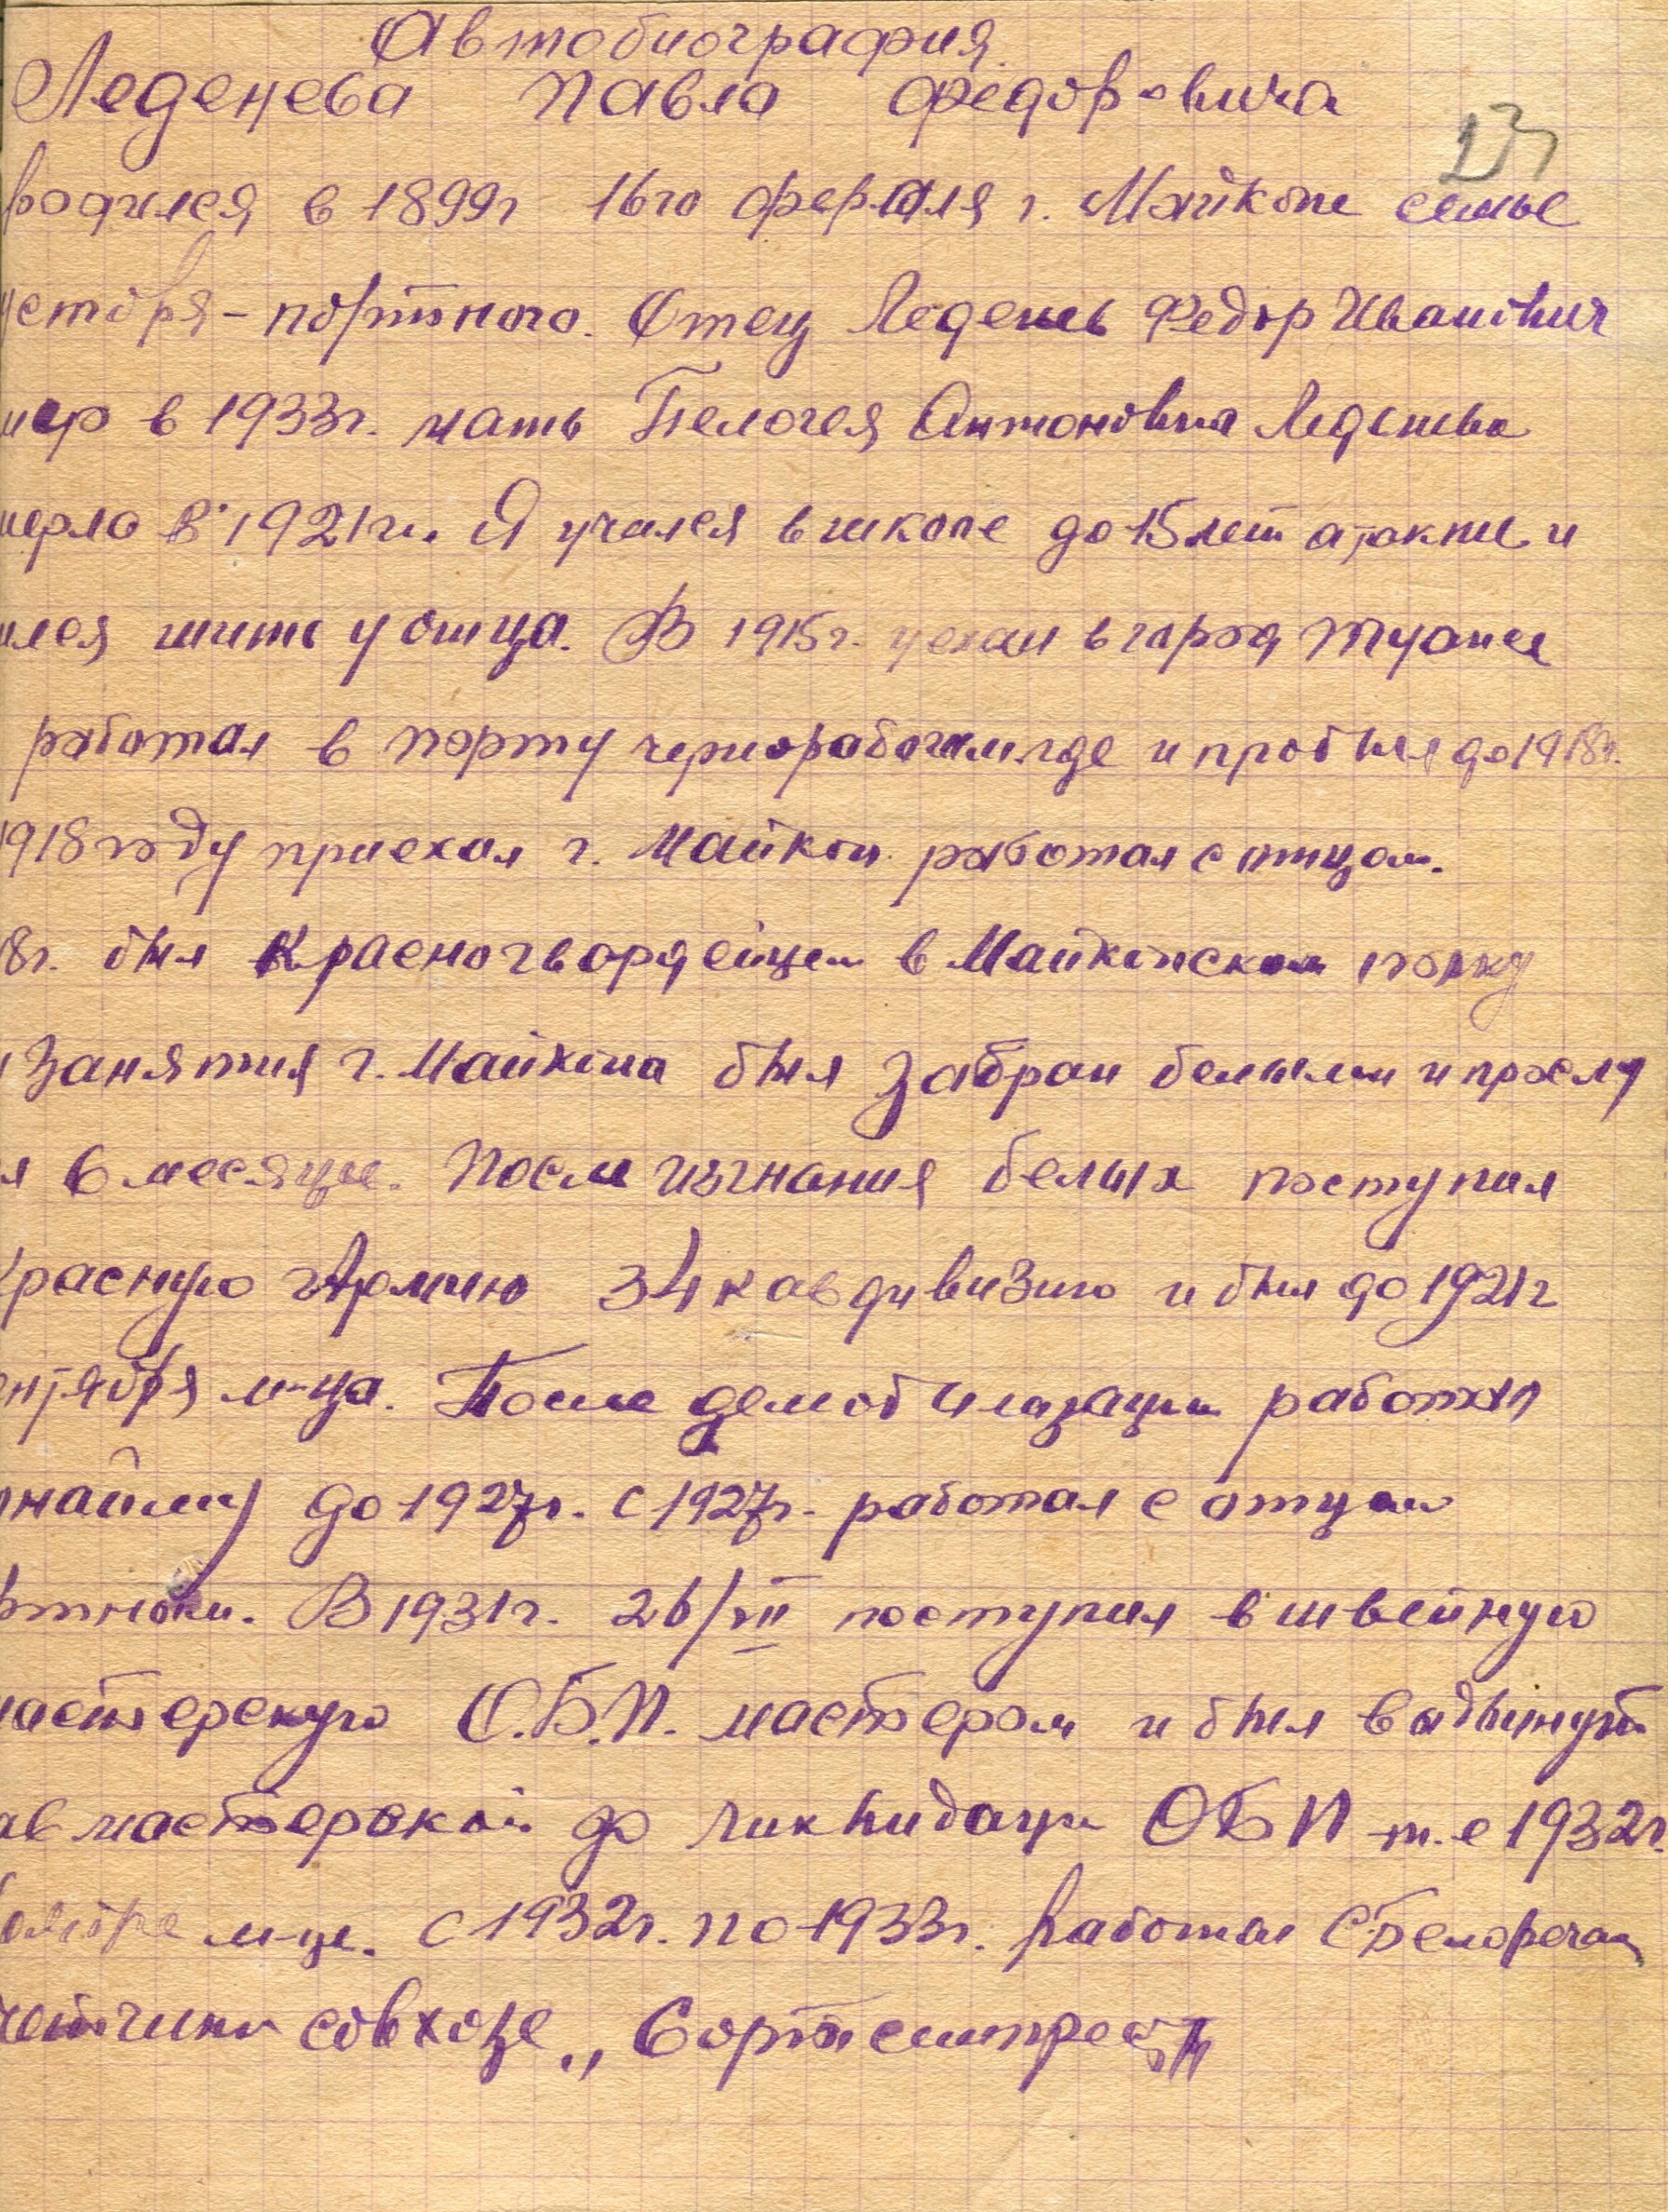 Автобиография
Леденева Павла Федоровича
23
родился в 1899г 16го февраля г. Майкопе семье
устаря - портного. Отец Леденев Федор Иванович
мер в 1933г. мать Пелогея Антоновна Леденева
мерла в 1921г. Я учился в школе до 15 лет а также и
лся шить у отца. В 1915г. уехал в город Туапсе
работал в порту чернорабочим где и пробыл до 1918г.
1918 году приехал г. Майкоп работал с отцом.
8г. был Красногвардейцем в Майкопском полку
Занятия г. Майкопа был забран белыми и прослу
л 6 месяцев. После изгнания белых поступил
Красную Армию 34 кавдивизию и был до 1921г
нтября м-ца. После демобилизации работал
найму до 1927г. с 1927г. работал с отцом
ртным. В 1931г. 26/VII поступил в швейную
мастерскую О.Б.П. мастером и был выдвинут
ав мастерской до ликвидаци ОБП т.е 1932г.
м-це. С 1932г. по 1933г. работал с. Белоречен
совхозе „Сортсемтрест"